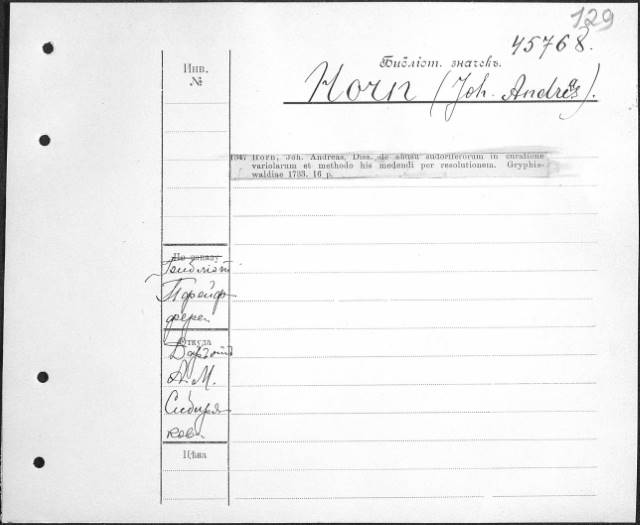 129
45768.
Библіот. значекъ.
Horn (Joh. Andreas).
Инв.
№
134. Horn, Joh. Andreas, Diss. de abusu sudoriferorum in curatione
variolarum et methodo his medendi per resolutionem. Gryphis-
waldiae 1733. 16 p.
По заказу
Пфейф
фера
Откуда
А. М.
Сибиря
кова
Цѣна